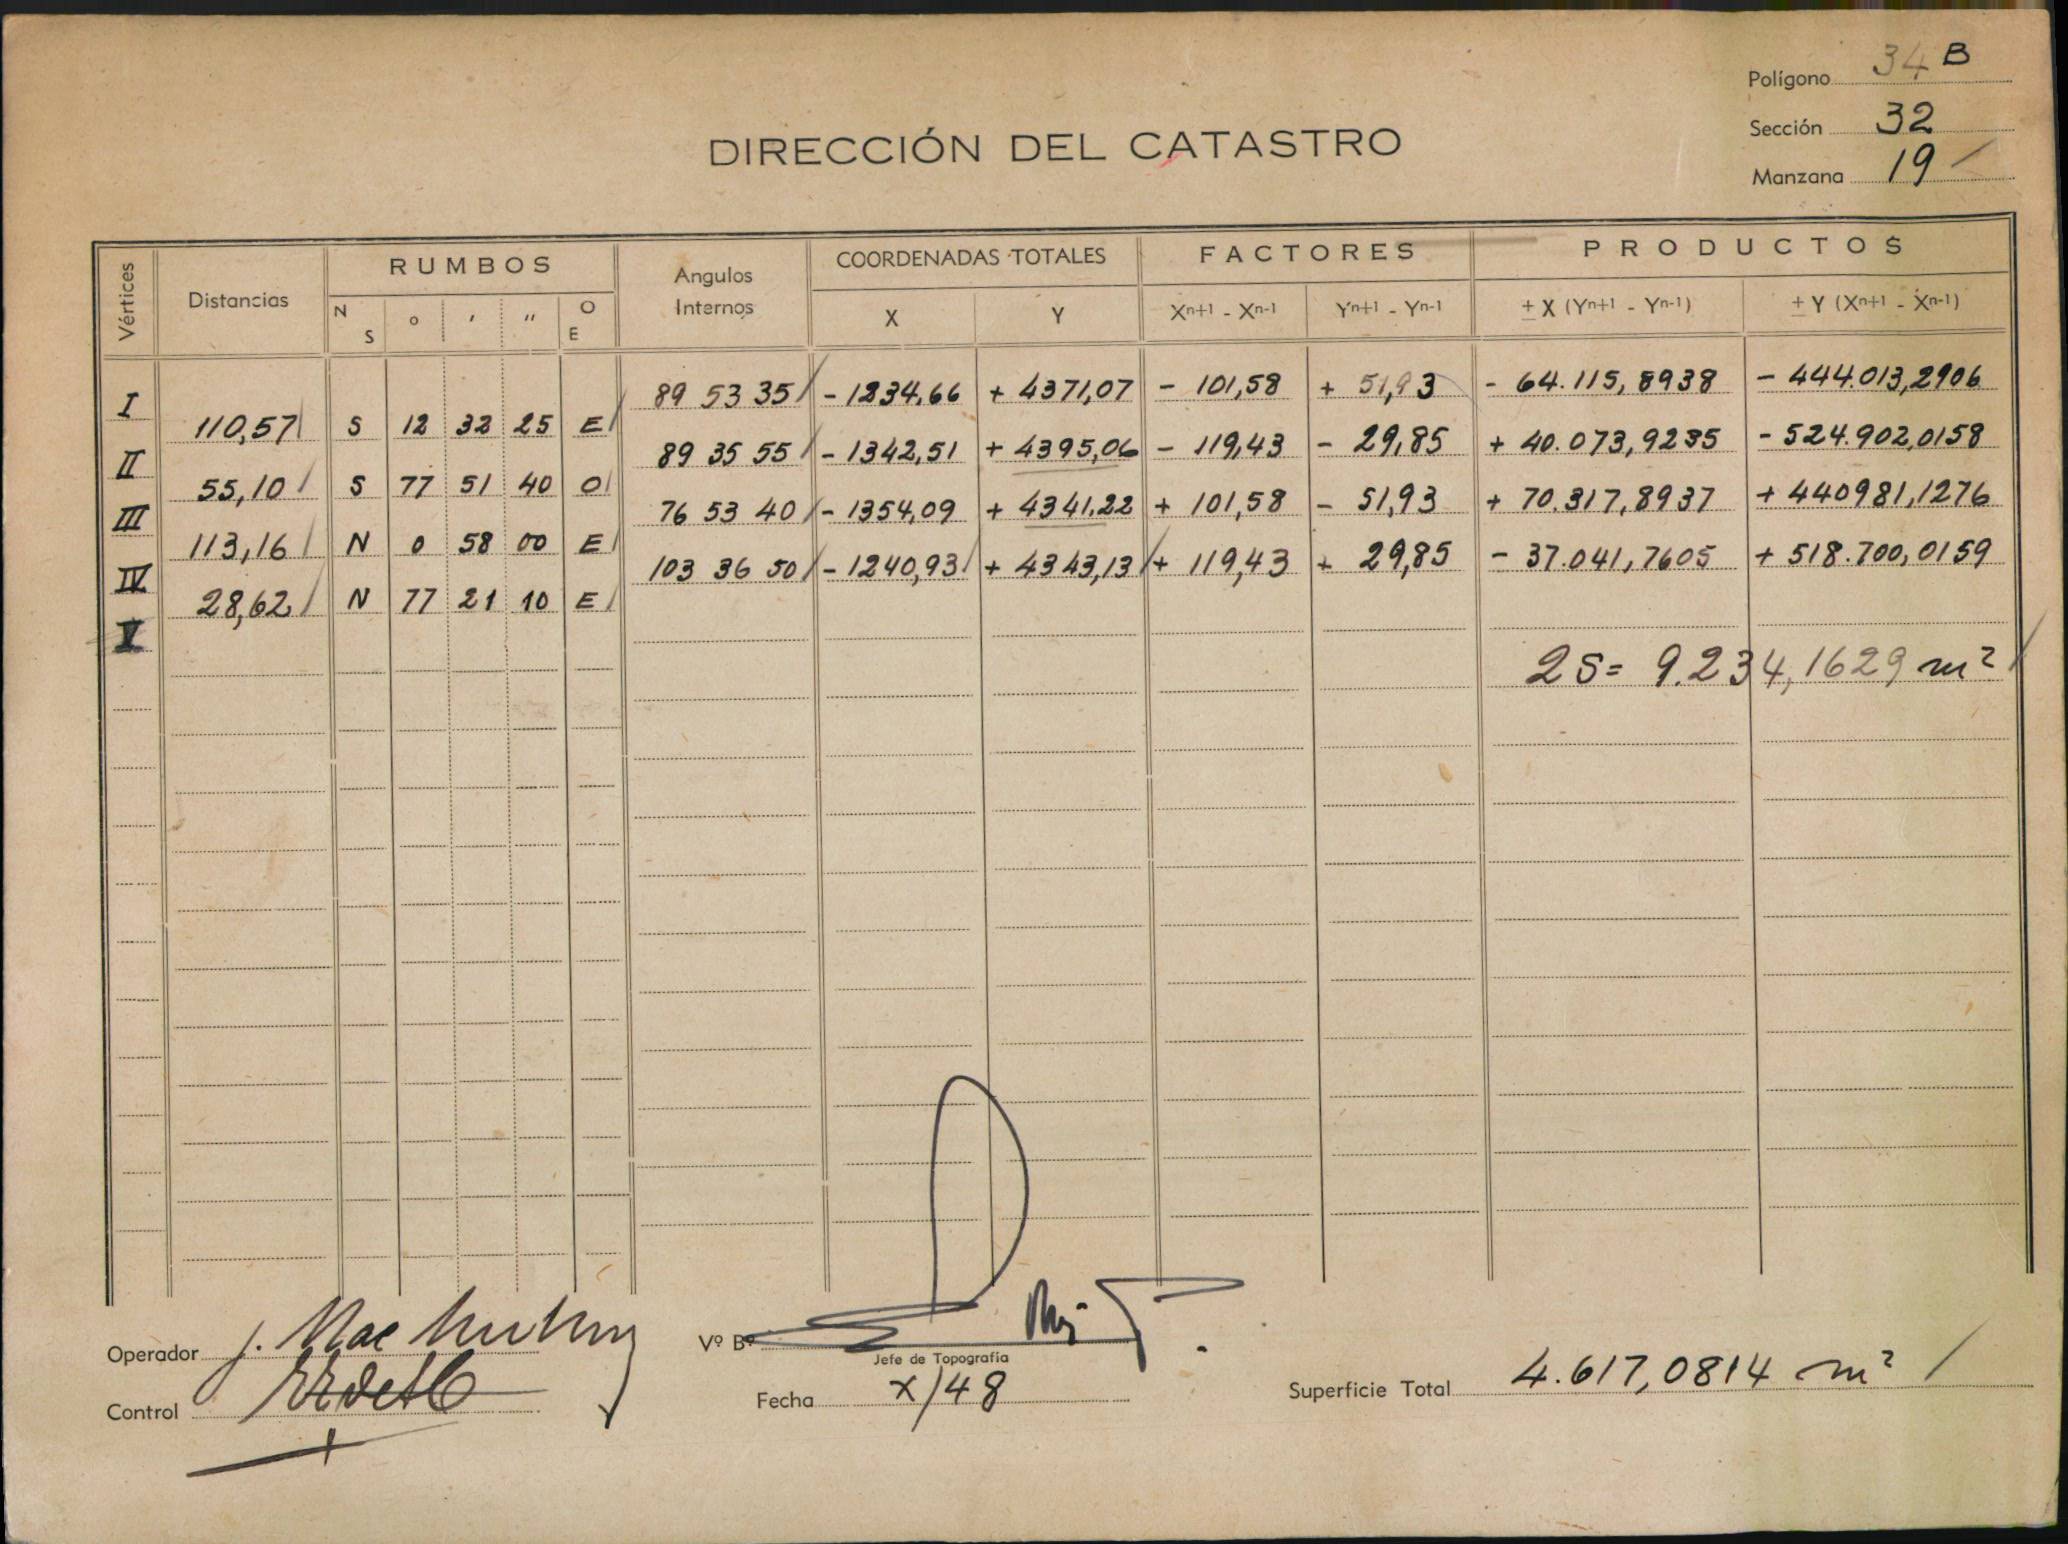 Polígono 34 B
Sección 32
Manzana 19
DIRECCIÓN DEL CATASTRO
Vértices Distancias RUMBOS Angulos Internos COORDENADAS TOTALES FACTORES PRODUCTOS
N S ° ′ ″ O E X Y Xn+1 - Xn-1 Yn+1 - Yn-1 ± X (Yn+1 - Yn-1) ± Y (Xn+1 - Xn-1)
I 89 53 35 - 1234,66 + 4371,07 - 101,58 + 51,93 - 64.115,8938 - 444.013,2906
110,57 S 12 32 25 E
II 89 35 55 - 1342,51 + 4395,06 - 119,43 - 29,85 + 40.073,9235 - 524.902,0158
55,10 S 77 51 40 O
III 76 53 40 - 1354,09 + 4341,22 + 101,58 - 51,93 + 70.317,8937 + 440981,1276
113,16 N 0 58 00 E
IV 103 36 50 - 1240,93 + 4343,13 + 119,43 + 29,85 - 37.041,7605 + 518.700,0159
28,62 N 77 21 10 E
V
2S= 9.234,1629 m²
Operador J. Mac
Vº Bº
Jefe de Topografía
Control
Fecha X/48
Superficie Total 4.617,0814 m²